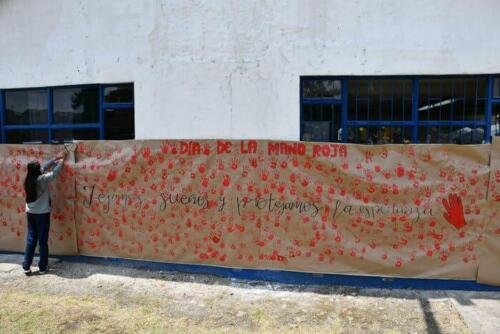 DIA DE LA MANO ROJA
Tejamos sueños y protejamos la esperanza